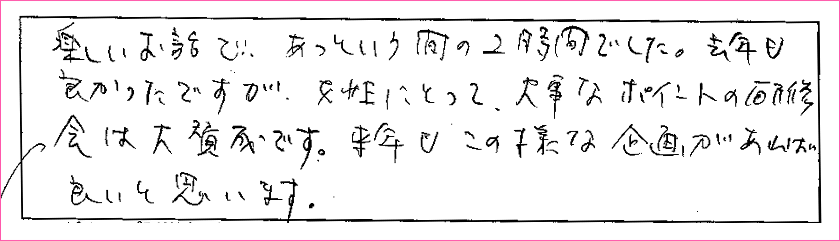 楽しいお話で、あっという間の2時間でした。去年も
良かったですが、女性にとって、大事なポイントの研修
会は大賛成です。来年もこの様な企画があれば
良いと思います。